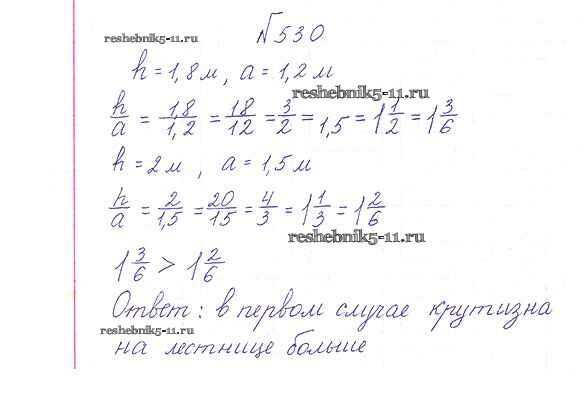 №530
reshebnik5-11.ru
h = 1,8 м, a = 1,2 м
reshebnik5-11.ru
h/a = 1,8/1,2 = 18/12 = 3/2 = 1,5 = 1 1/2 = 1 3/6
h = 2 м , a = 1,5 м
h/a = 2/1,5 = 20/15 = 4/3 = 1 1/3 = 1 2/6
reshebnik5-11.ru
1 3/6 > 1 2/6
Ответ: в первом случае крутизна
reshebnik5-11.ru
на лестнице больше